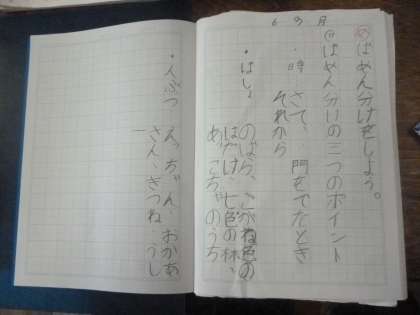 6の月
めばめん分けをしよう。
ばめん分けの三つのポイント
・時 さて、門をでたとき
それから
・ばしょ
のばら、こがね色の
はたけ、七色の林、
あ こちゃのうち
・人ぶつ
ちゃん・おかあ
さん・きつね
うし